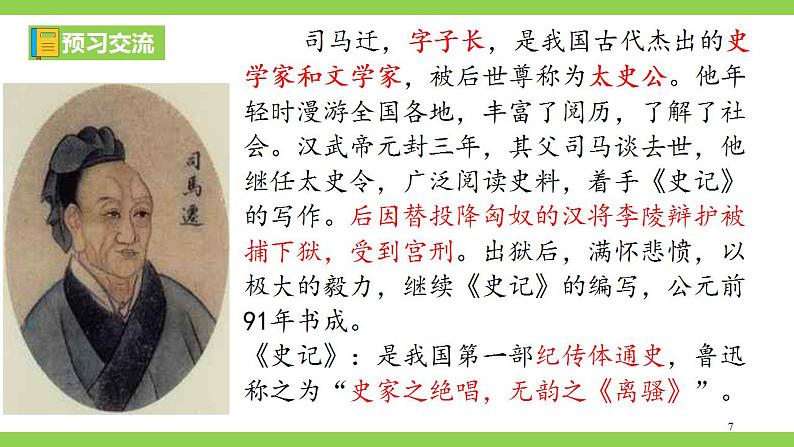 预习交流
司马迁，字子长，是我国古代杰出的史
学家和文学家，被后世尊称为太史公。他年
轻时漫游全国各地，丰富了阅历，了解了社
会。汉武帝元封三年，其父司马谈去世，他
继任太史令，广泛阅读史料，着手《史记》
的写作。后因替投降匈奴的汉将李陵辩护被
捕下狱，受到宫刑。出狱后，满怀悲愤，以
极大的毅力，继续《史记》的编写，公元前
91年书成。
《史记》：是我国第一部纪传体通史，鲁迅
称之为“史家之绝唱，无韵之《离骚》”。
司馬遷
7